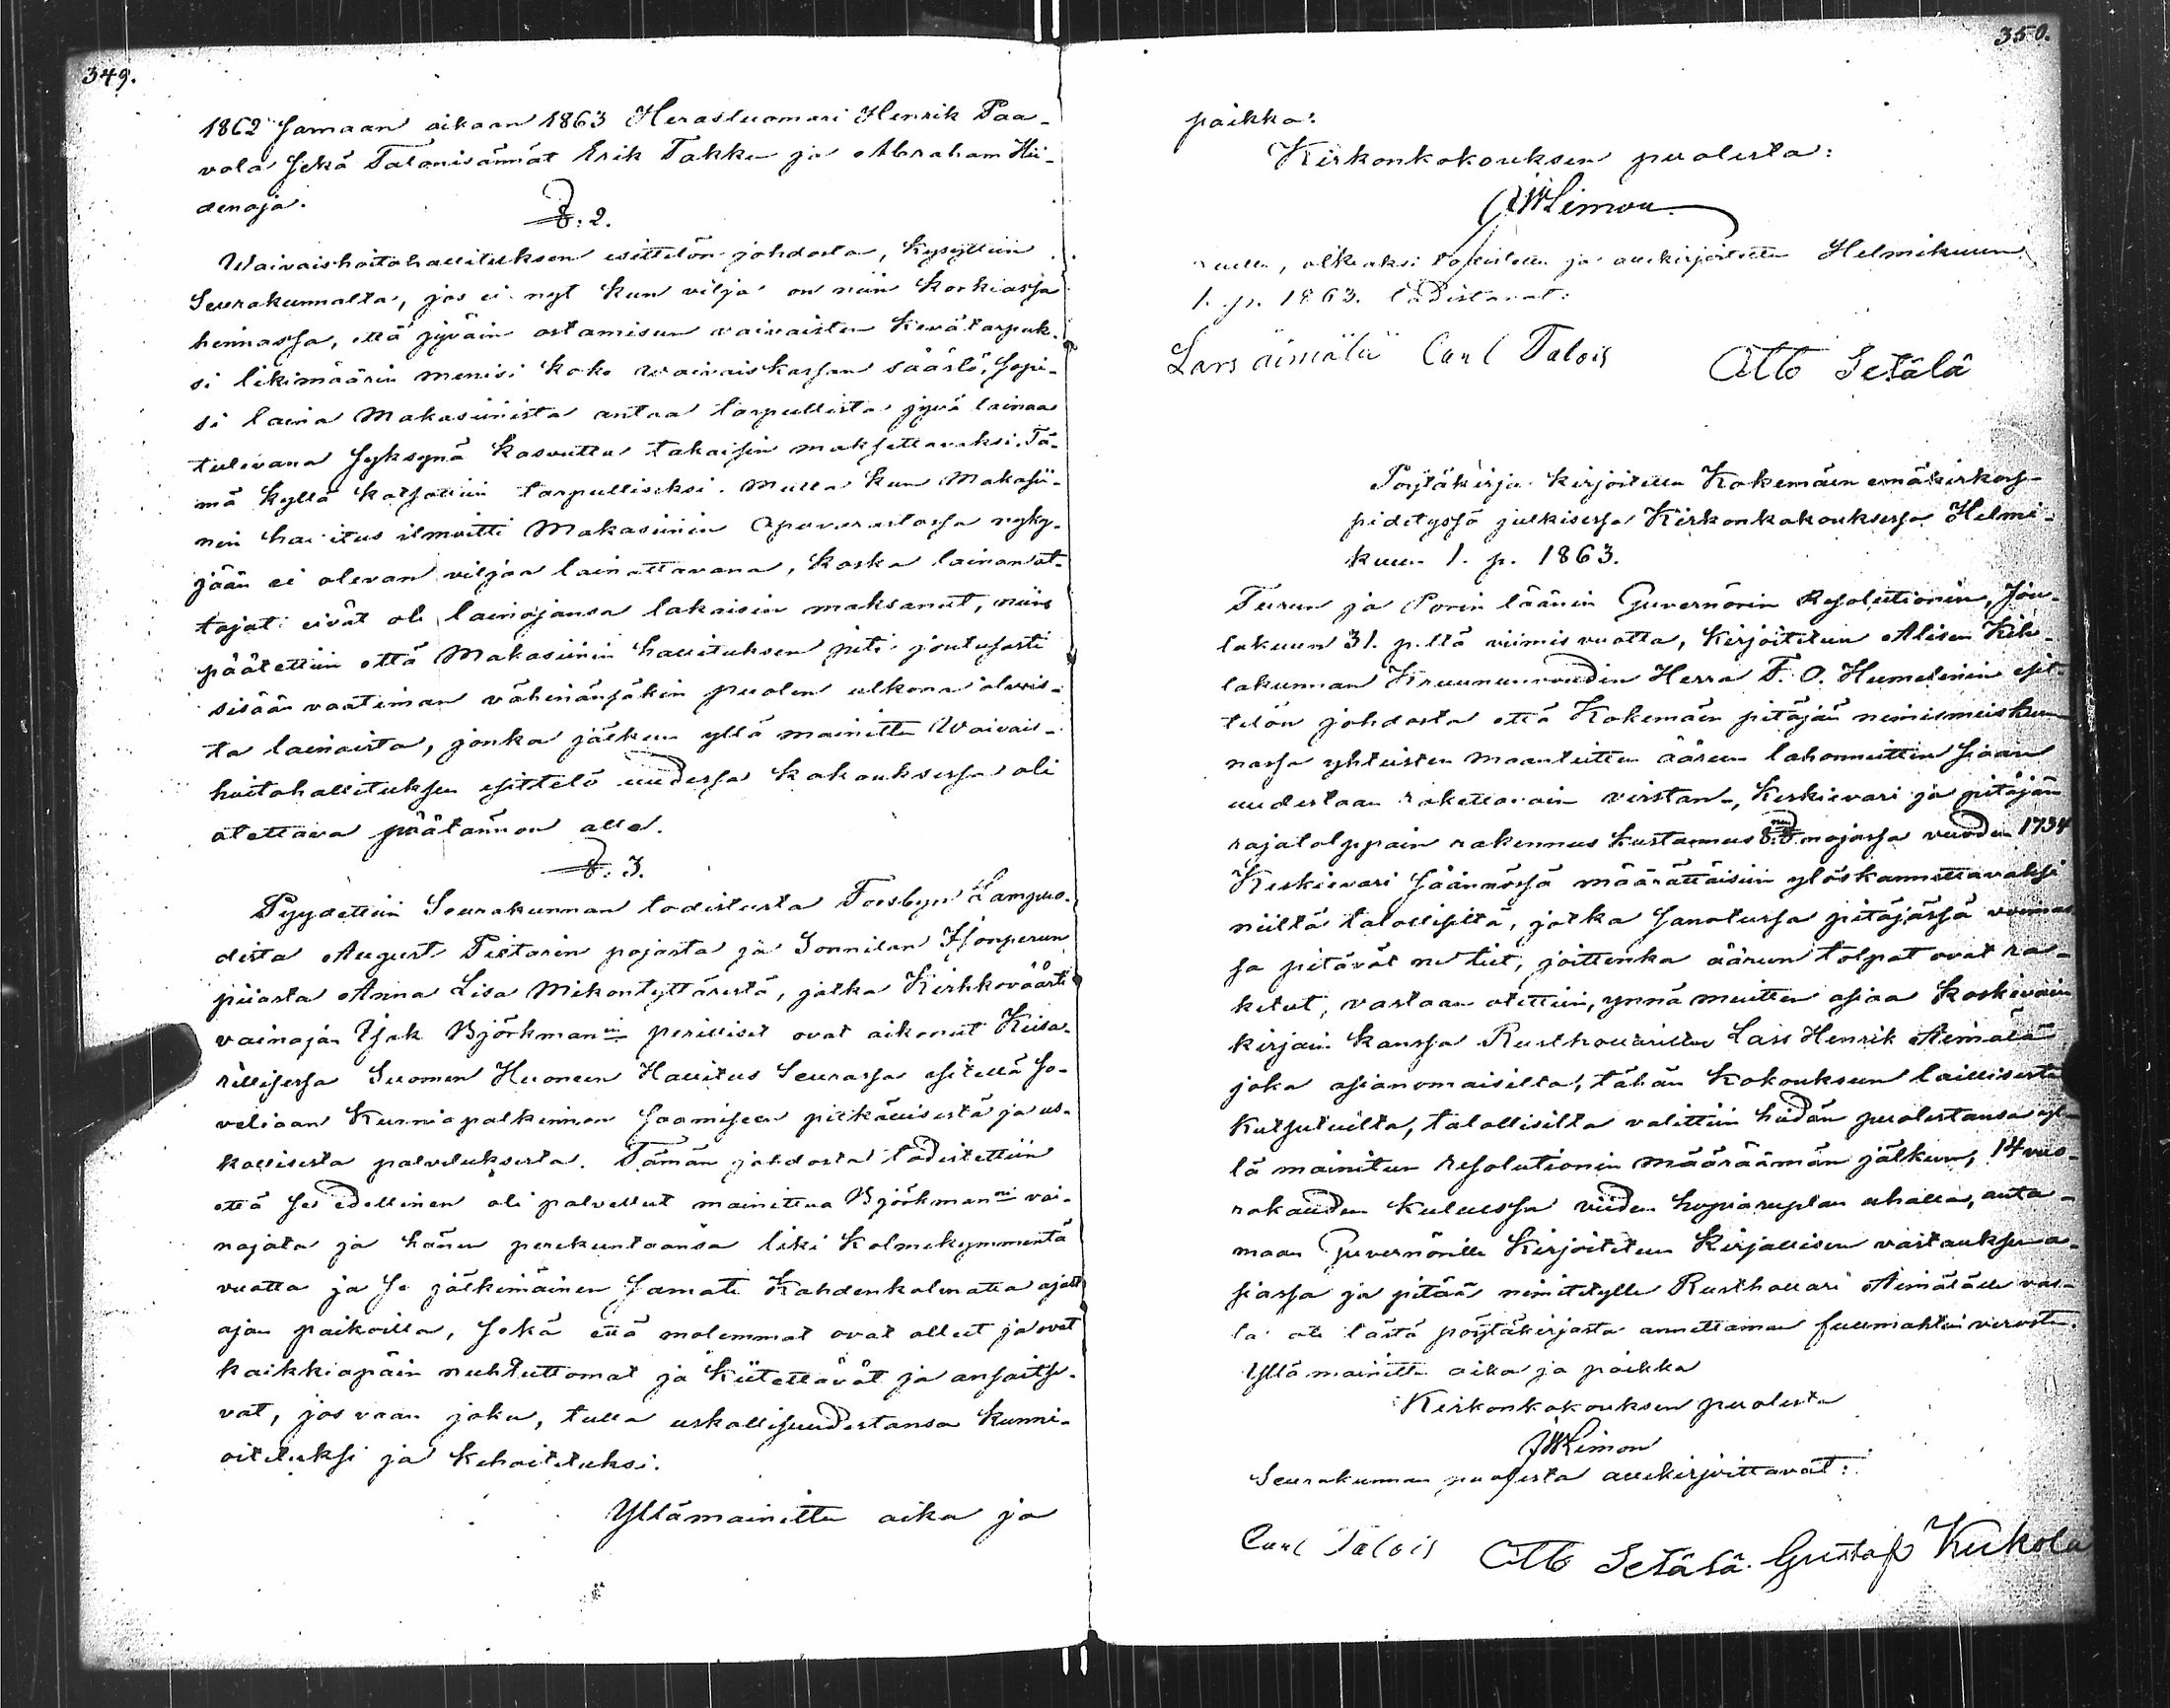 349.
1862 samaan aikaan 1863 Herastuomari Henrik Paa-
vola sekä Talonisännät Erik Takku ja Abraham Hii-
denoja.
§. 2.
Waivaishoitohallituksen esittelön johdosta, kysyttiin
Seurakunnalta, jos ei nyt kun vilja on niin korkiassa
hinnassa, että jyväin ostamiseen vaivaisten kevätarpuk-
si likimäärin menisi koko waivaiskassan säästö, sopi-
si laina Makasiinista antaa tarpullista jyvä lainaa
tulevana syksynä kasvutta takaisin maksettavaksi. Tä-
mä kyllä katsottiin tarpulliseksi. Mutta kun Makasii-
nin hallitus ilmoitti Makasiinin Apuvarastossa nyky-
jään ei olevan viljaa lainattavana, koska lainanot-
tajat eivät ole lainojansa takaisin maksanut, niin
päätettiin että Makasiinin hallituksen piti joutusasti
sisään vaatiman vähinänsäkin puolen ulkona olevis-
ta lainoista, jonka jälkeen yllä mainittu Waivais-
hoitohallituksen esittelö uudessa kokouksessa oli
otettava päätännön alle.
§. 3.
Pyydettiin Seurakunnan todistusta Forsbyn Lampuo-
dista August Tistarin pojasta ja Sonnilan Isonperun
piiasta Anna Lisa Mikontyttärestä, jotka Kirkkoväärti
vainajan Isak Björkmanin perilliset ovat aikonut Keisa-
rillisessa Suomen Huoneen Hallitus Seurassa esitellä so-
veliaan kunniapalkinnon saamiseen pitkällisestä ja us-
kollisesta palveluksesta. Tämän johdosta todistettiin
että se edellinen oli palvellut mainittua Björkmanni vai-
najata ja hänen perekuntaansa liki kolmekymmentä
vuotta ja se jälkimäinen samati Kahdenkolmatta ajast
ajan paikoilla, sekä että molemmat ovat olleet ja ovat
kaikkiapäin nuhtettomat ja kiitettävät ja ansaitse-
vat, jos vaan joku, tulla uskollisuudestansa kunni-
oitetuksi ja kehoitetuksi.
Yllämainittu aika ja
350.
paikka:
Kirkonkokouksen puolesta:
JWLimon
luettu, oikeaksi todistettu ja allekirjoitettu Helmikuun
1. p. 1863. todistavat:
Lars äimälä Carl Talois Otto Setälä
Pöytäkirja kirjoitettu Kokemäen emäkirkoss-
pidetyssä julkisessa Kirkonkokouksessa Helmi-
kuun 1. p. 1863.
Turun ja Porin läänin Guvernörin Resolutionin, Jou-
lukuun 31. p:ltä viimis vuotta, kirjoitetun Alisen Kih-
lakunnan Kruununvoudin Herra F. O. Humelinin esit-
telön johdosta että Kokemäen pitäjän nimismieskun
nassa yhteisten maanteitten ääreen lahonneitten siaan
uudestaan rakettavain virstan-, Keskievari ja pitäjän
rajatolppain rakennus kustannus nojassa vuoden 1734
Keskievari säännössä määrättäisiin ylöskannettavaksi
niiltä talollisilta, jotka sanotussa pitäjässä voimas
sa pitävät ne tiet, joittenka ääreen tolpat ovat ra-
ketut, vastaan otettiin, ynnä muitten asiaa koskevain
kirjain kanssa Rusthollarilta Lars Henrik Äimälä
joka asianomaisilta, tähän kokoukseen laillisesti
kutsutuilta, talollisilta valittiin heidän puolestansa yl-
lä mainitun resolutionin määräämän jälkeen, 14 vuo-
rokauden kuluessa viiden hopiaruplan uhalla, anta-
maan Guvernörille kirjoitetun kirjallisen vastauksen a-
siassa ja pitää nimitetylle Rusthollari Äimälälle val-
ta ote tästä pöytäkirjasta annettaman fullmahtin verosta.
Yllä mainittu aika ja paikka
Kirkonkokouksen puolesta
JWLimon
Seurakunnan puolesta allekirjoittavat:
Carl Talois Otto Setälä. Gustaf Kukola